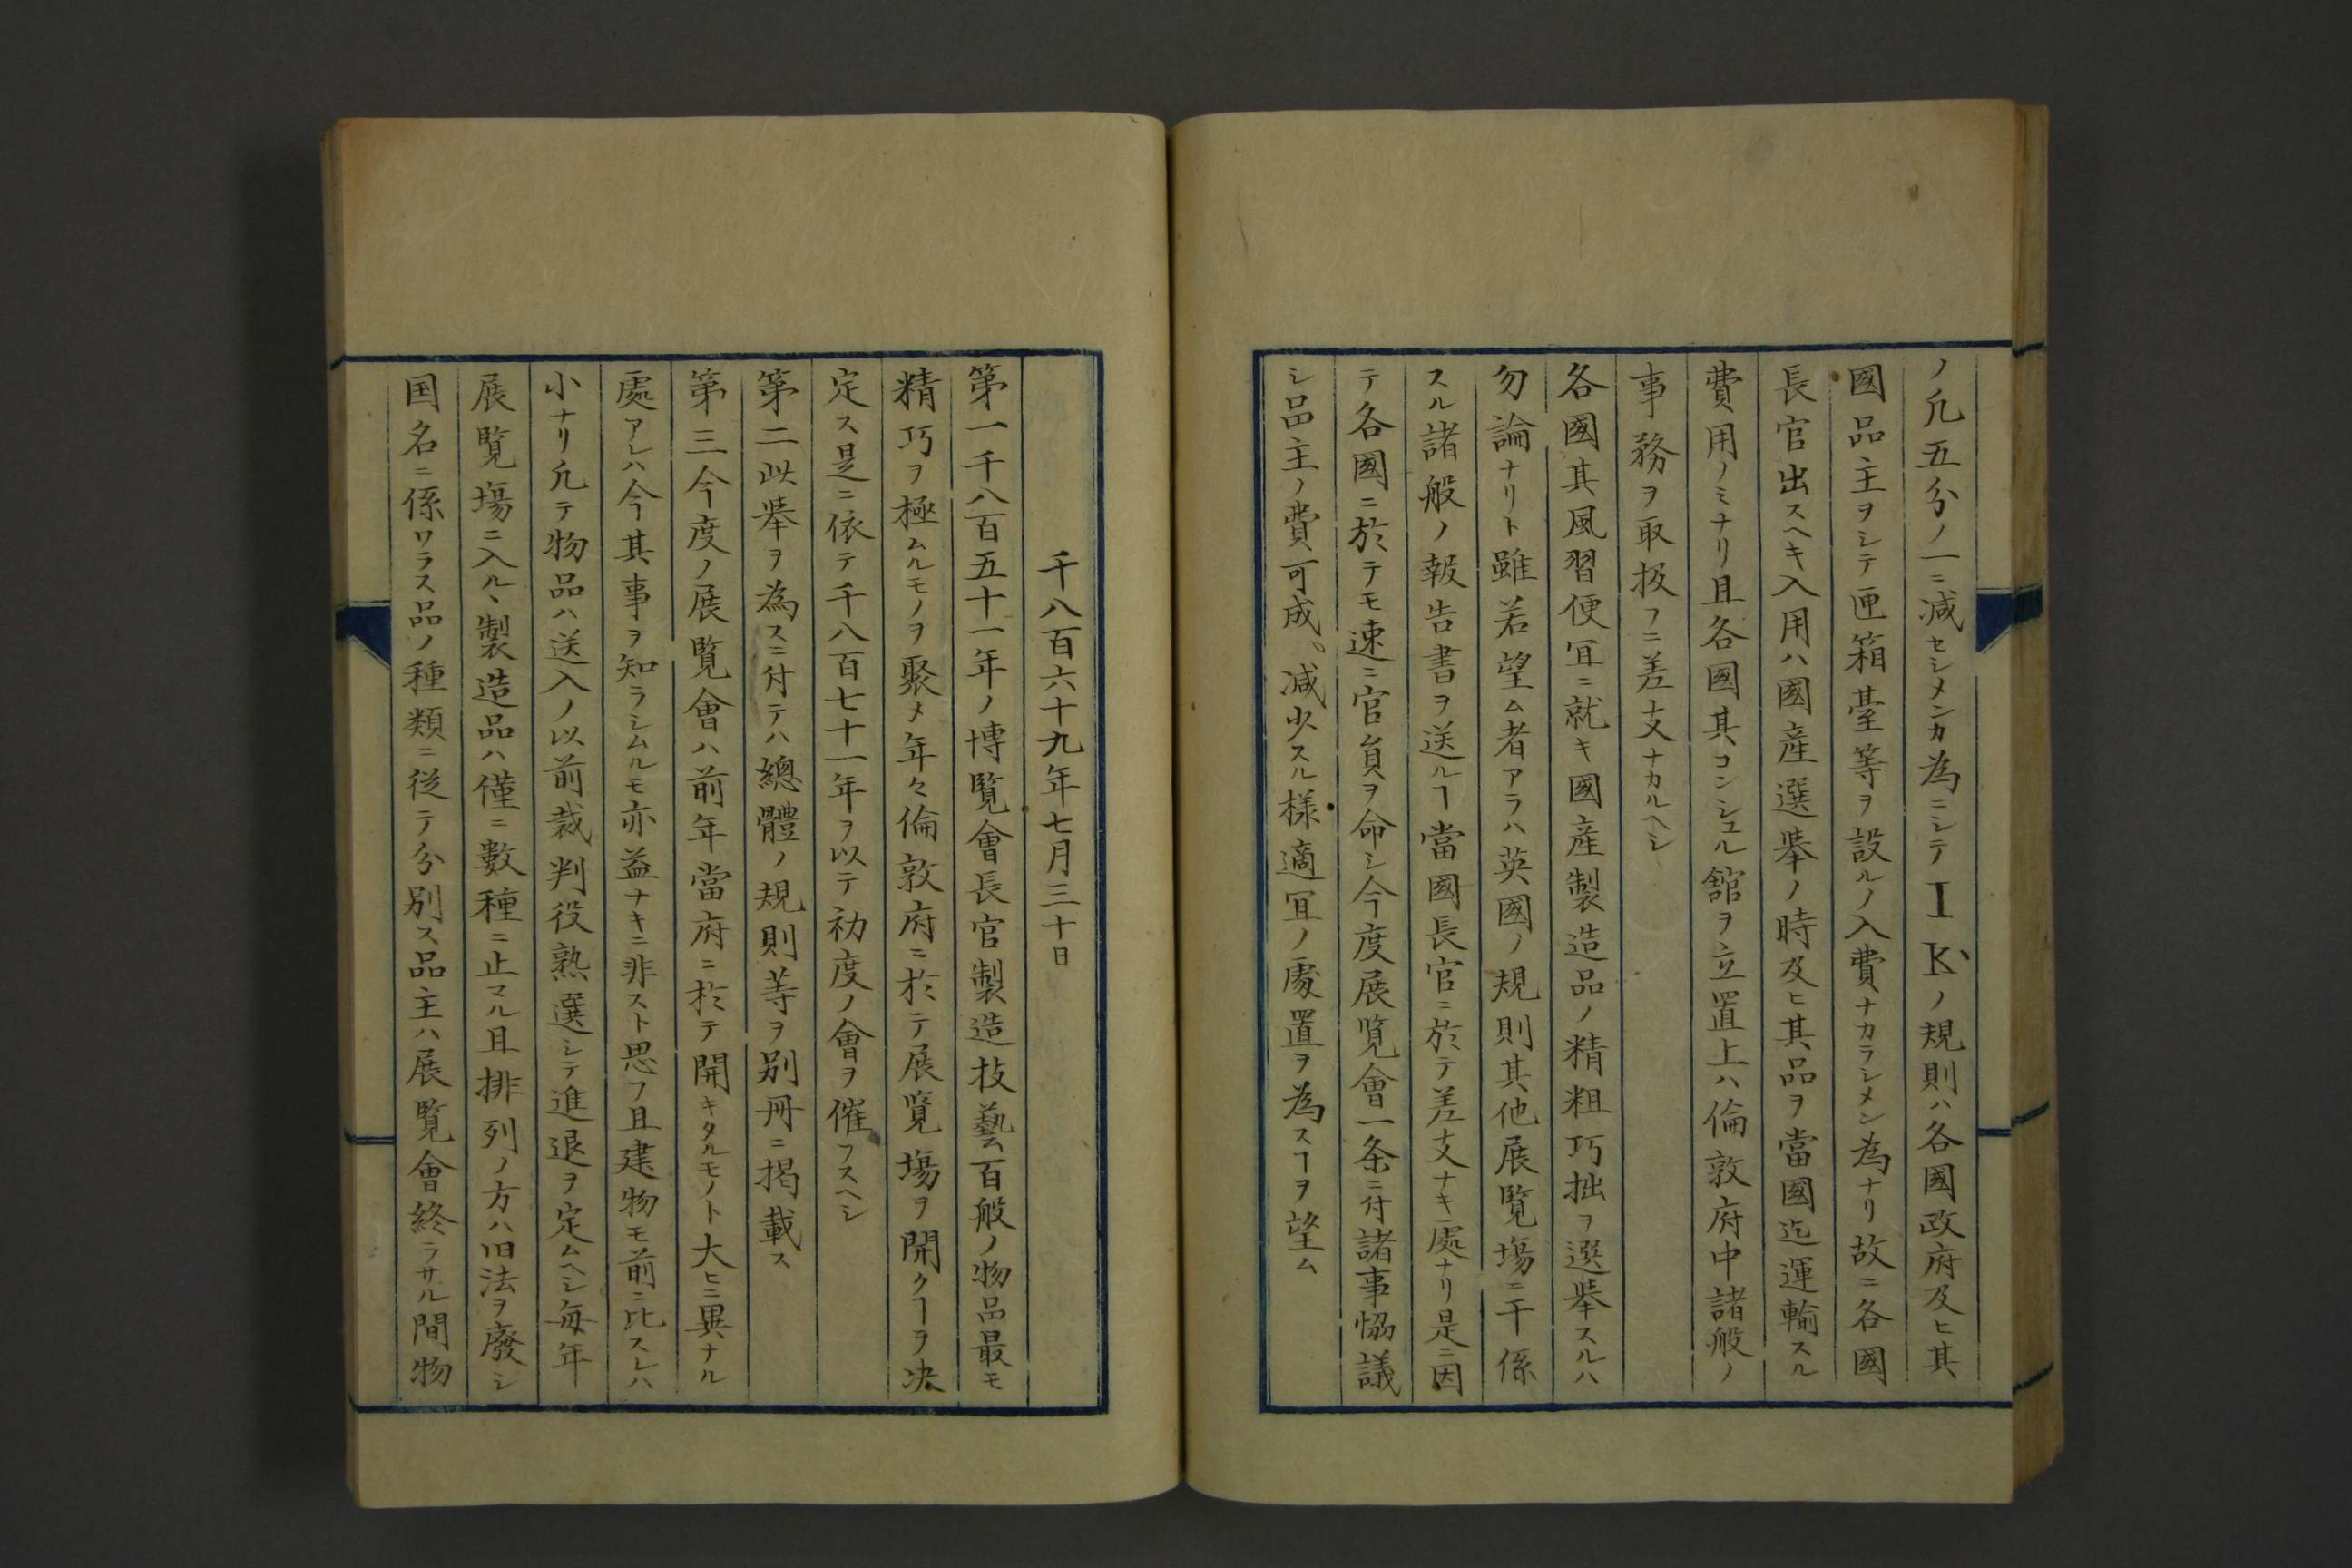 ノ凡五分ノ一ニ減セシメンカ為ニシテIKノ規則ハ各國政府及ヒ其
國品主ヲシテ匣箱臺等ヲ設ルノ入費ナカラシメン為ナリ故ニ各國
長官出スヘキ入用ハ國産選挙ノ時及ヒ其品ヲ當國迄運輸スル
費用ノミナリ且各國其コンシュル舘ヲ立置上ハ倫敦府中諸般ノ
事務ヲ取扱フニ差支ナカルヘシ
各國其風習便冝ニ就キ國産製造品ノ精粗巧拙ヲ選挙スルハ
勿論ナリト雖若望ム者アラハ英國ノ規則其他展覧塲ニ干係
スル諸般ノ報告書ヲ送ルヿ當國長官ニ於テ差支ナキ處ナリ是ニ因
テ各國ニ於テモ速ニ官員ヲ命シ今度展覧會一条ニ付諸事恊議
シ品主ノ費可成減少スル様適冝ノ處置ヲ為スヿヲ望ム
千八百六十九年七月三十日
第一千八百五十一年ノ博覧會長官製造技藝百般ノ物品最モ
精巧ヲ極ムルモノヲ聚メ年々倫敦府ニ於テ展覧塲ヲ開クヿヲ决
定ス是ニ依テ千八百七十一年ヲ以テ初度ノ會ヲ催フスヘシ
第二此挙ヲ為スニ付テハ總體ノ規則等ヲ别冊ニ掲載ス
第三今度ノ展覧會ハ前年當府ニ於テ開キタルモノト大ヒニ異ナル
處アレハ今其事ヲ知ラシムルモ亦益ナキニ非スト思フ且建物モ前ニ比スレハ
小ナリ凡テ物品ハ送入ノ以前裁判役熟選シテ進退ヲ定ムヘシ毎年
展覧塲ニ入ルヽ製造品ハ僅ニ數種ニ止マル且排列ノ方ハ旧法ヲ廢シ
国名ニ係ワラス品ノ種類ニ従テ分别ス品主ハ展覧會終ラサル間物